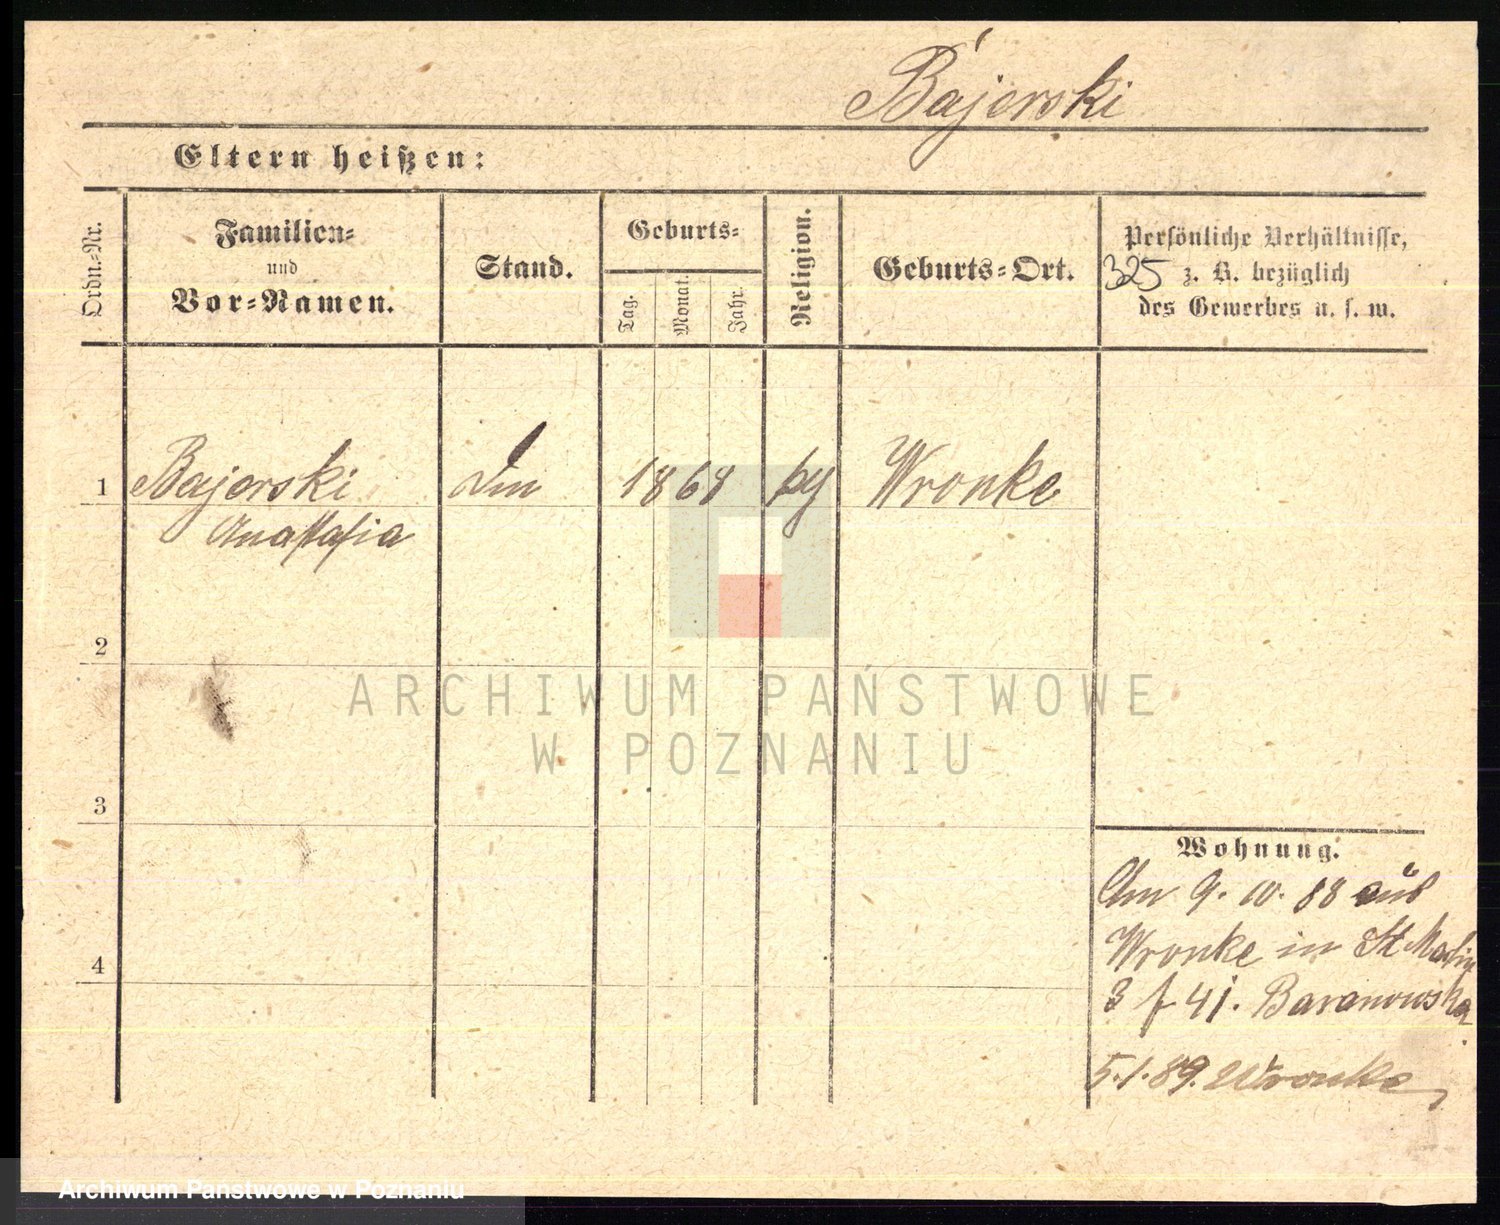 Bajerski
Eltern heißen:
Ordn.-Nr.
Familien-
und
Vor-Namen.
Stand.
Geburts-
Tag.
Monat.
Jahr.
Religion.
Geburts-Ort.
Persönliche Verhältnisse,
325 z. B. bezüglich
des Gewerbes u. s. w.
1 Bajerski 1868 Wronke
Anastasia
2
3
4
ARCHIWUM PAŃSTWOWE
W POZNANIU
Wohnung.
Am 9. 10. 88 aus
Wronke in St Martin
3 f 41. Baranowska
5.1.89. Wronke
Archiwum Państwowe w Poznaniu